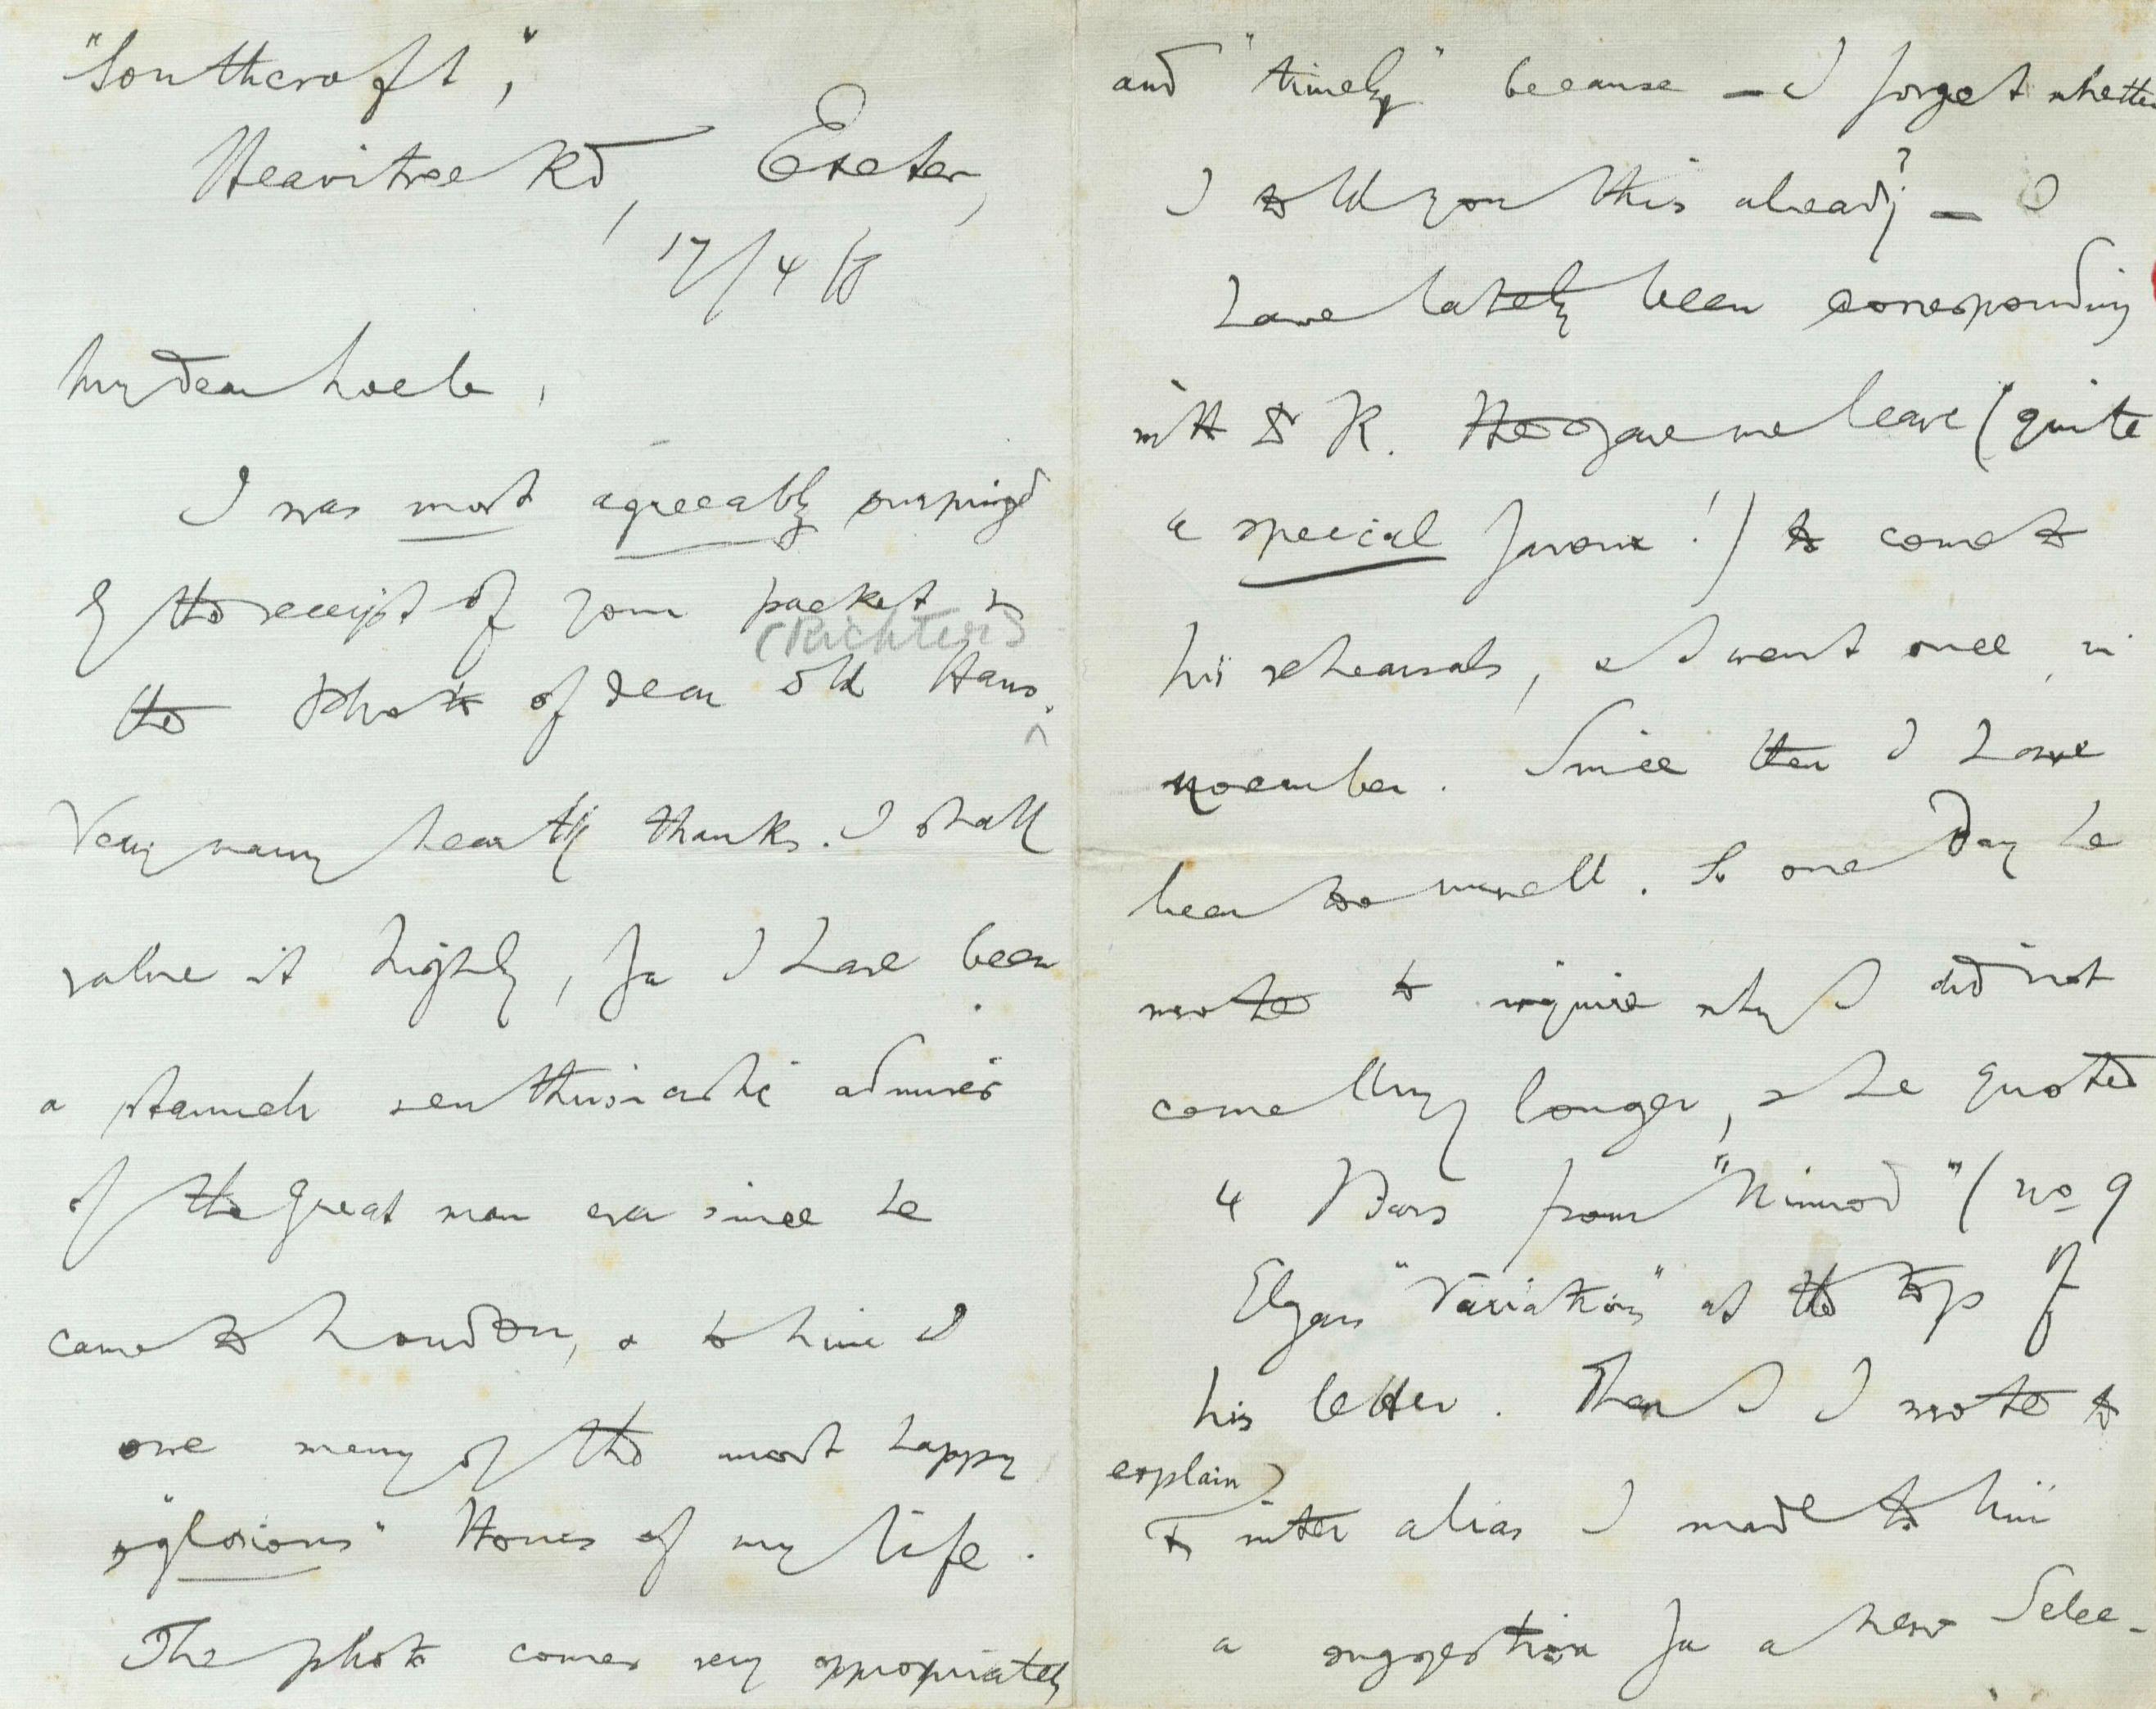 "Southcroft",
Heavitree Rd, Exeter,
17/4/8
My dear Loeb,
I was most agreeably surprised
by the receipt of your packet &
(Richter)
the photo of dear old Hans.
^
Very many hearty thanks. I shall
value it highly, for I have been
a staunch & enthusiastic admirer
of the great man ever since he
came to London, & to him I
owe many of the most happy
& "glorious" Hours of my life.
The photo comes very appropriately
and "timely" because — I forget whether
I told you this already? — I
have lately been corresponding
with Dr R. He gave me leave (quite
a special favour!) to come to
his rehearsals, & I went once, in
November. Since then I have
been too unwell. So one day he
wrote to inquire why I did not
come any longer, & he quoted
4 Bars from "Nimrod" (no 9
Elgars "Variations" at the top of
his letter. Then I wrote to
explain &
inter alias I made to him
a suggestion for a new Selec-